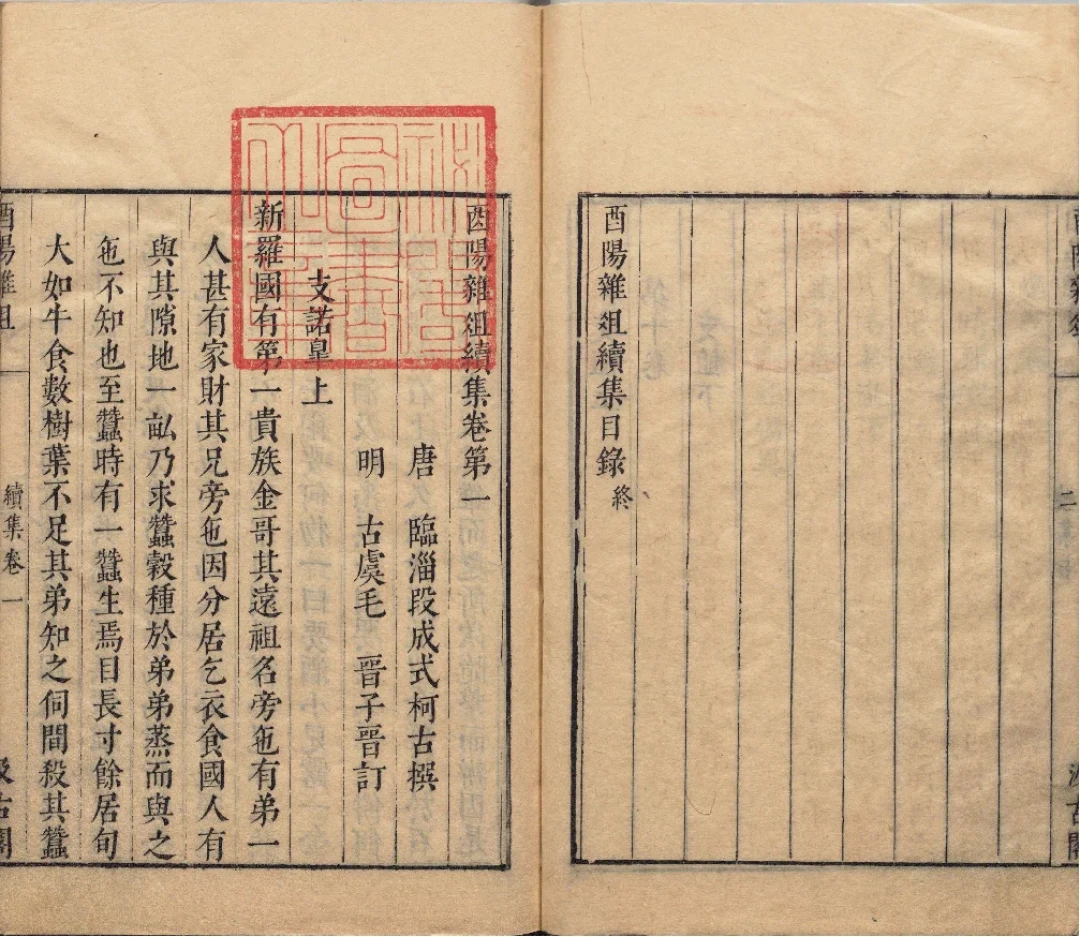 酉陽雜俎
二
汲古閣
酉陽雜俎續集目錄終
酉陽雜俎續集卷第一
唐 臨淄段成式柯古撰
明 古虞毛 晉子晉訂
支諾皐上
新羅國有第一貴族金哥其遠祖名旁㐌有弟一
人甚有家財其兄旁㐌因分居乞衣食國人有
與其隙地一畝乃求蠶穀種於弟弟蒸而與之
㐌不知也至蠶時有一蠶生焉目長寸餘居旬
大如牛食數樹葉不足其弟知之伺間殺其蠶
酉陽雜俎
續集卷一
汲古閣